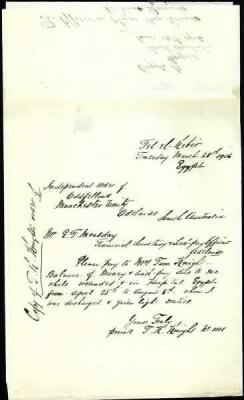 Tel-el-Kebir
Tuesday March 28th 1916
Egypt
Independent order of
Oddfellows
Manchester Unity
Adelaide South Australia
Mr E T Measday
Financial Secretary Sick Pay Officer
Adelaide
Please pay to Mrs Tom Knight
Balance of Money & Sick pay due to me
while wounded & in Hospital Egypt
from April 25th to August 8th when I
was discharged & given light duties
Yours Truly
private T. H. Knight No 1111
Copy of T. H. Knights order